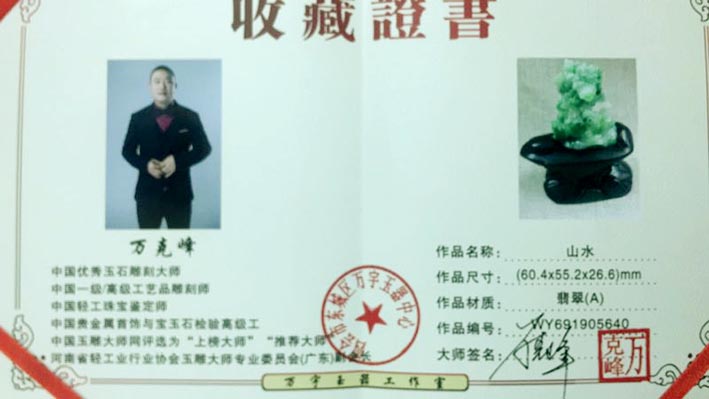 收藏證書
万克峰
中国优秀玉石雕刻大师
中国一级/高级工艺品雕刻师
中国轻工珠宝鉴定师
中国贵金属首饰与宝玉石检验高级工
中国玉雕大师网评选为“上榜大师”“推荐大师”
河南省轻工业行业协会玉雕大师专业委员会(广东)副会长
会市东城区万字玉器中心
作品名称: 山水
作品尺寸: (60.4x55.2x26.6)mm
作品材质: 翡翠(A)
作品编号: WY691905640
大师签名: 万克峰
万克峰
万字玉器工作室